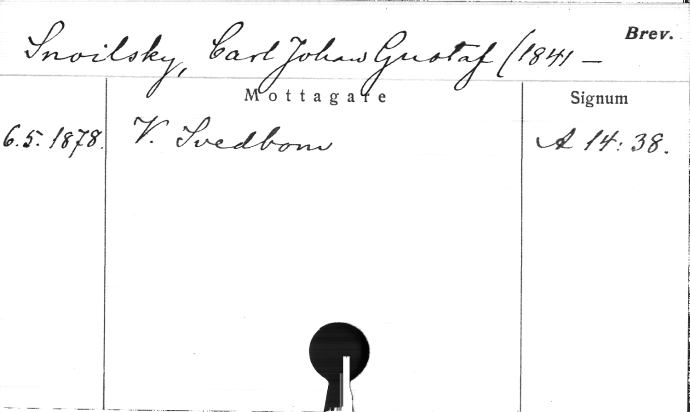 Brev.
Snoilsky, Carl Johan Gustaf (1841 –
Mottagare Signum
6.5.1878. V. Svedbom A 14:38.